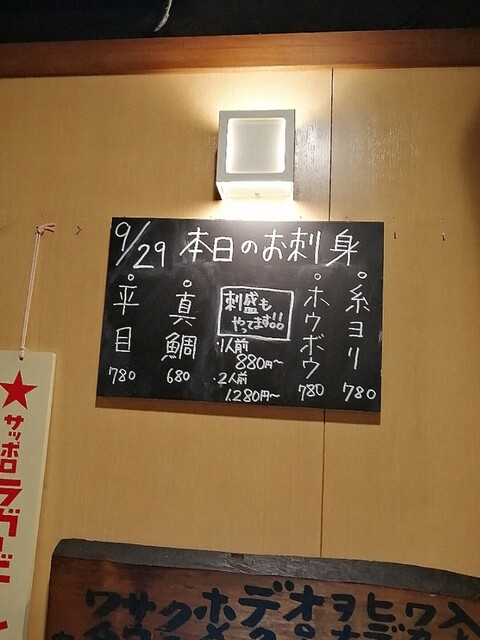 9/29 本日のお刺身
糸ヨリ
780
ホウボウ
780
刺盛も
やってます!!
・1人前
880円~
・2人前
1.280円~
真鯛
680
平目
780
★サッポロラガービ
ワサクホデオヲヒワ入